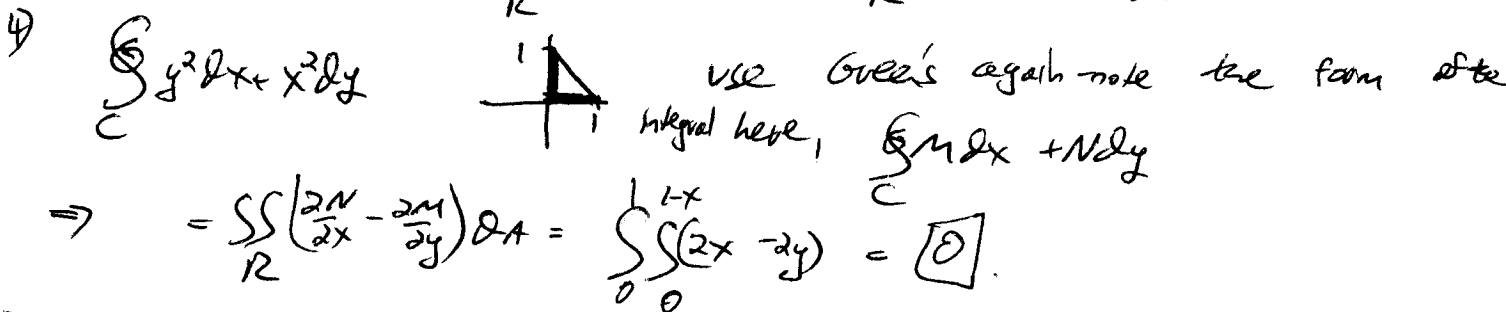 R
4) ∮_C y²dx + x²dy 1 1 use Green's again note the form of the
integral here, ∮_C Mdx + Ndy
⇒ = ∬_R (∂N/∂x - ∂M/∂y) dA = ∫_0^1 ∫_0^{1-x} (2x - 2y) = 0.